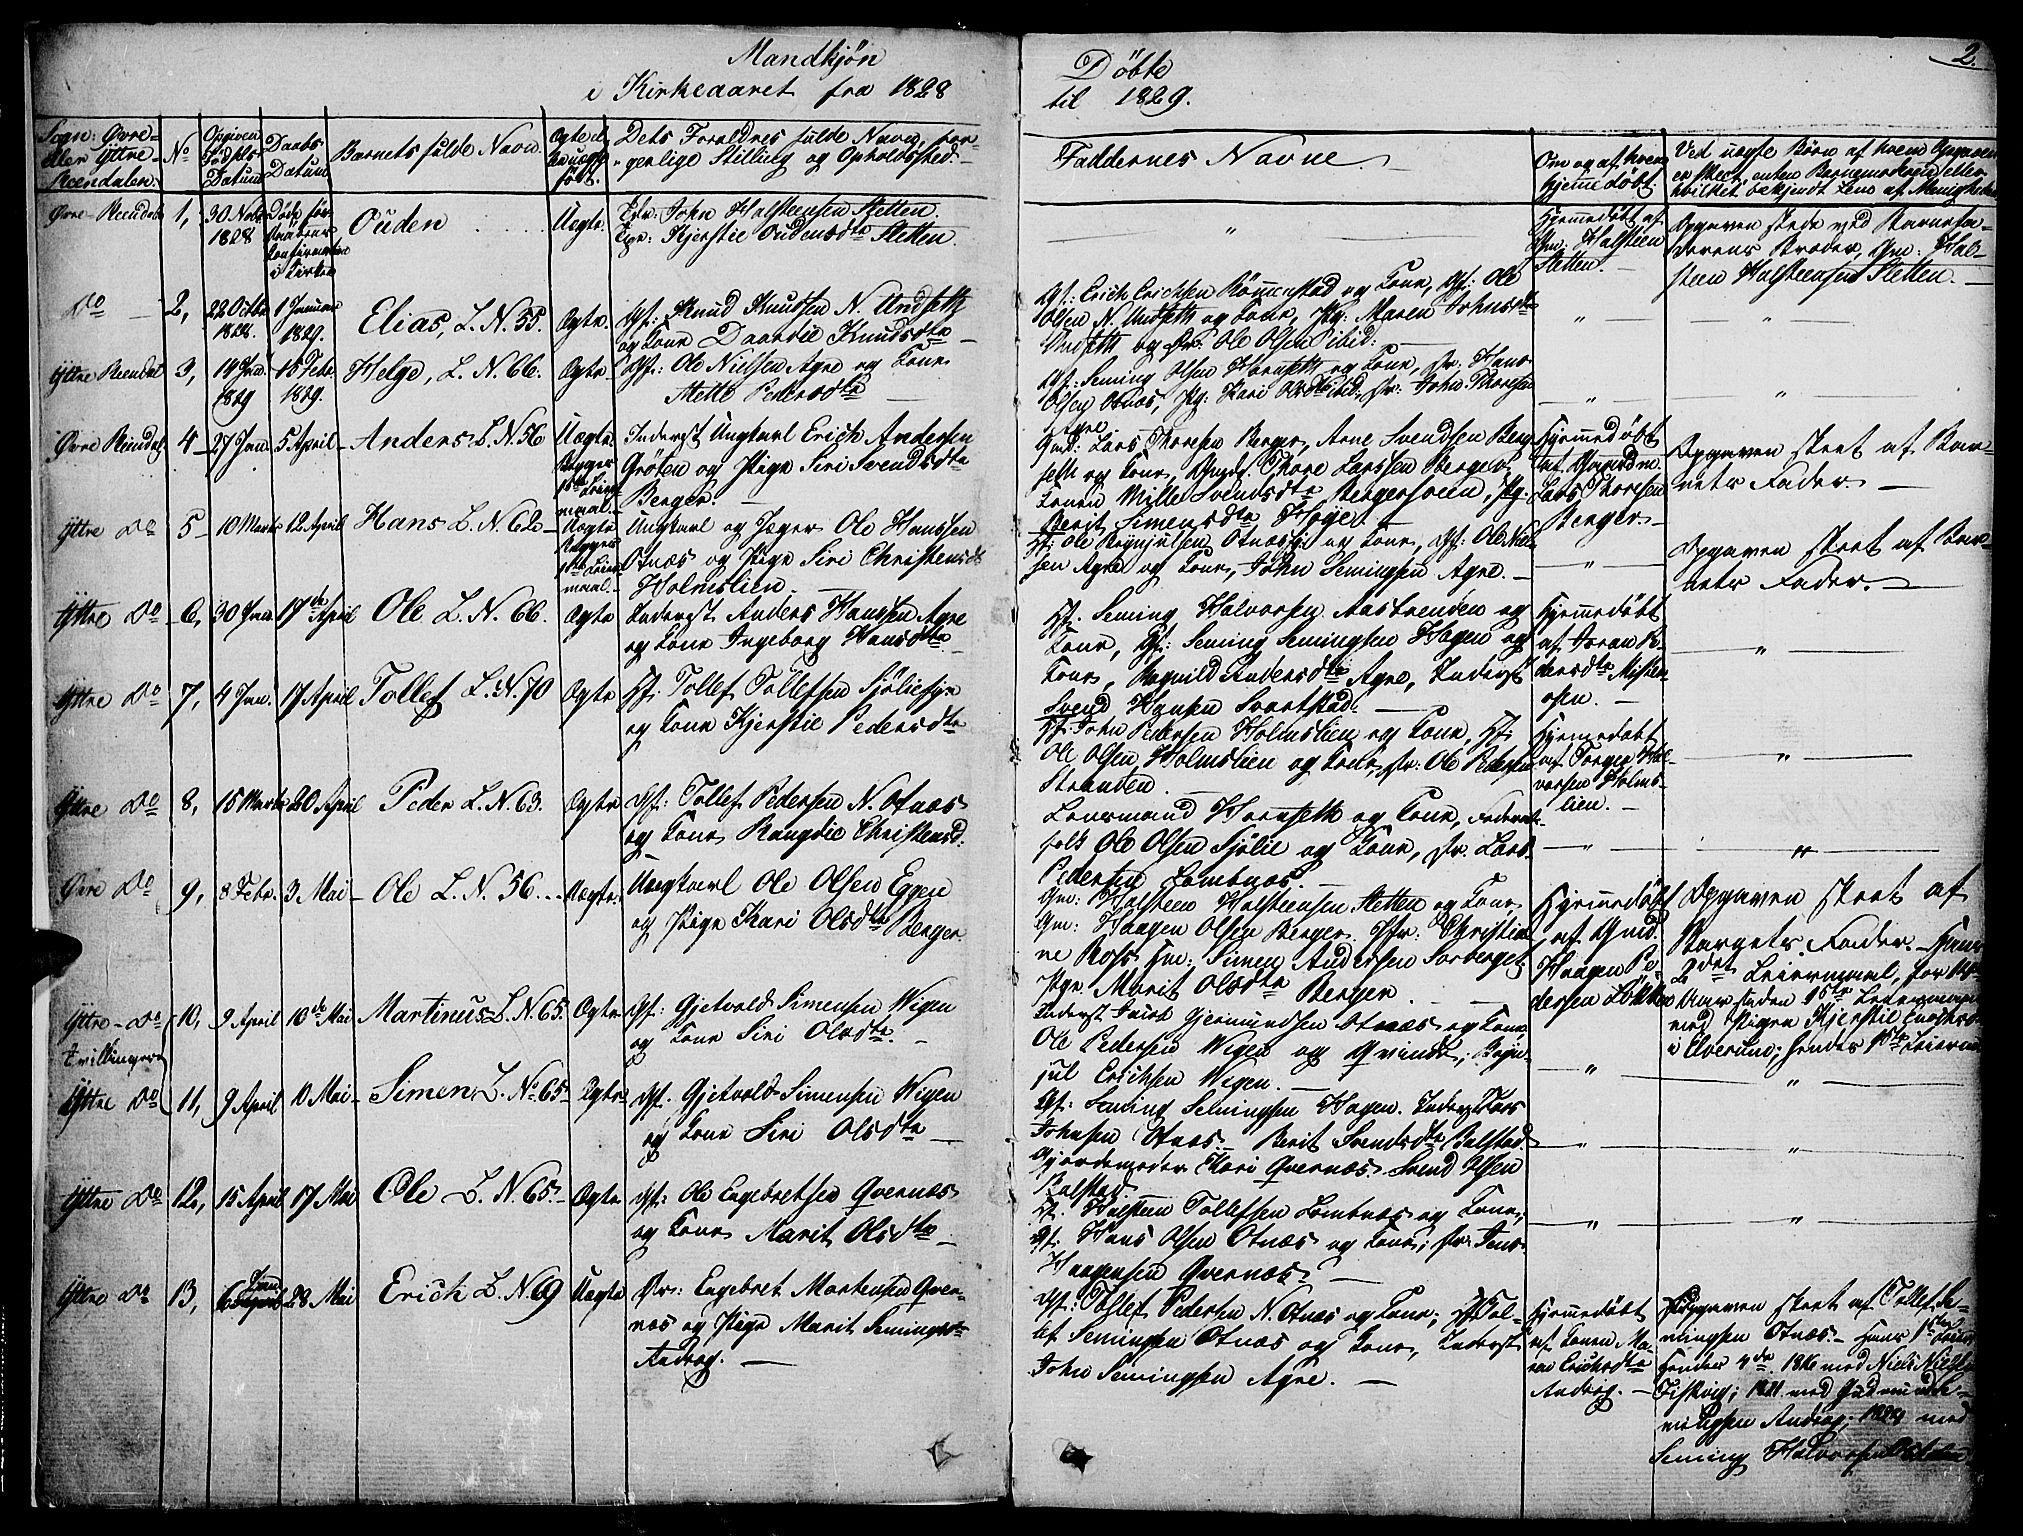 Mandkjøn
i Kirkeaaret fra 1828
Døbte
til 1829.
2.
Sogn: Øvre- eller Yttre- Reendalen.
No
Opgiven Fødsels Datum
Daabs Datum
Barnets fulde Navn
Ægte el. uægte født.
Dets Foreldres fulde Navn, borgerlige Stilling og Opholdssted
Faddernes Navne
Om og af hvem hjemmedøbt.
Ved uægte Børn af hvem Opgaven er skeet, enten Barnemoderen eller
Øvre Reendal 1, 30 Novbr 1828 Døde før
i Kirken
Ouden
Uegte.
Fdr: John Halsteensen Sletten.
Pige: Kjerstie Oudensdtr Sletten.
"
Hjemmedøbt af
Gm: Halsteen
Sletten.
Opgaven skede ved Barnefa-
derens Broder, Gm: Hal-
steen Halsteensen Sletten.
Do 2, 22 Octbr 1828. 1 Januar 1829. Elias, L. N. 55. Ægte.
Gf: Knud Knudsen N. Undseth
og Kone Daardie Knudsdtr
Gf: Erich Erichsen Rømmenstad og Kone, Gf: Ole
Olsen N. Undseth og Kone, Pg: Maren Johnsdtr
Undseth og Dr: Ole Olsen ibid:
Yttre Reendal 3, 14 Jan. 1829 15 Febr 1829. Helge, L. N. 66. Ægte
Gf: Ole Nielsen Agre og Kone
Mette Pedersdtr
Gf: Seming Olsen Hornseth og Kone, Dr. Hans
Olsen Otnæs, Pg: Kari Olsdtr ibid, Dr. John Thoresen
Agre
Øvre Reendal 4 27 Jan. 5 April Anders L. N. 56 Uægte
Inderst Ungkarl Erich Andersen
Grøten og Pige Siri Svendsdtr
Berger.
Gmd: Lars Thoresen Berger, Arne Svendsen Berg-
seth og Kone, Thore Larssen Berger,
Konen Mille Svendsdtr Bergersveen, Pg:
Berit Simensdtr Høye.
Hjemmedøbt
af Gaardm.
Lars Thoresen
Berger.
Opgaven skeet af Bar-
nets Fader.
Yttre Do 5 10 Marts 12 April Hans L. N. 62 Uægte
Ungkarl og Jæger Ole Hanssen
Otnæs og Pige Siri Christensdtr
Holmslien
Hf: Ole Brynjulsen Otnæs og Kone, Gf: Ole Niel-
sen Agre og Kone, John Semingsen Agre.
Opgaven skeet af Bar-
nets Fader.
Yttre Do 6, 30 Jan. 17de April Ole L. N. 66. Ægte
Inderst Anders Hanssen Agre
og Kone Ingeborg Hansdtr.
Hf. Seming Halvorsen Aastrenden og
Kone, Gf: Seming Semingsen Hagen og
Kone, Ragnild Andersdtr Agre, Inderst
Svend Hansen Svartstad.
Hjemmedøbt
af Joran Pe-
dersdtr Misten-
osen.
Yttre Do 7, 4 Jan. 17 April Tollef L. N. 70 Ægte
Hf. Tollef Tollefsen Sjølieseyre
og Kone Kjerstie Pedersdtr
Hf. John Pedersen Holmslien og Kone, Hf.
Ole Olsen Holmslien og Kone, Dr: Ole Pedersen
Stranden.
Hjemmedøbt
af Torger Hal-
vorsen Holms-
lien.
Yttre Do 8, 15 Marts 20 April Peder L. N. 63. Ægte
Gf: Tollef Pedersen N. Otnæs
og Kone Rangdie Christensd.
Lensmand Hornseth og Kone, Føderaads-
folk Ole Olsen Sjølie og Kone, Dr. Lars
Pedersen Lombnæs.
Øvre Do 9, 8 Febr. 3 Mai Ole L. N. 56 Uægte
Ungkarl Ole Olsen Eggen
og Pige Kari Olsdtr Berger.
Gm: Halsteen Halsteensen Sletten og Kone
Gm: Haagen Olsen Berger. Jfr: Christia-
ne Ross Hm: Simen Andersen Sorberget.
Pige Marit Olsdtr Berger.
Hjemmedøbt
af Gmd.
Haagen Pe-
dersen Løkken
Opgaven skeet af
Barnets Fader. Hans
2det Leiermaal, for
Aar siden 1ste Leiermaal
med Pigen Kjerstie
i Elverum; hendes 1ste Leierm.
Yttre Do 10, 9 April 10de Mai Martinus L. N. 65. Ægte
Tvillinger
Gf: Gjetvold Simensen Wigen
og Kone Siri Olsdtr.
Inderst Jacob Gjermundsen Otnæs og Kone
Ole Pedersen Wigen og Qvinde, Bryn-
jul Erichsen Wigen.
Yttre Do 11, 9 April 10 Mai Simen L. No 65 Ægte
Gf. Gjetvold Simensen Wigen
og Kone Siri Olsdtr
Gf: Seming Semingsen Hagen. Inderst Lars
Johnsen Otnæs. Berit Svendsdtr Balstad
Gjordemoder Kari Qvernæs. Svend Olsen
Balstad.
Yttre Do 12, 15 April 17 Mai Ole L. N. 65. Ægte
Gf: Ole Engebretsen Qvernæs
og Kone Marit Olsdtr
Hf. Halsteen Tollefsen Lombnæs og Kone;
Gf. Hans Olsen Otnæs og Kone; Dr: Jens
Haagensen Qvernæs
Yttre Do 13, 6 Janu 28 Mai Erich L. N. 69 Uægte
Dr: Engebret Mortensen Qver-
næs og Pige Marit Semingsdtr
Andrag.
Gf: Tollef Pedersen N. Otnæs og Kone; Hf Tol-
lef Semingsen Otnæs og Kone, Inderst
John Semingsen Agre.
Hjemmedøbt
af Konen Ma-
ren Erichsdtr
Andrag.
Opgaven skeet af Tollef Se-
mingsen Otnæs. Hans 1ste
Hendes 4de 1816 med Niels Nielsen
Fiskvig; 1821 med Gudmund Se-
mingsen Andrag; 1824 med
Seming Halvorsen